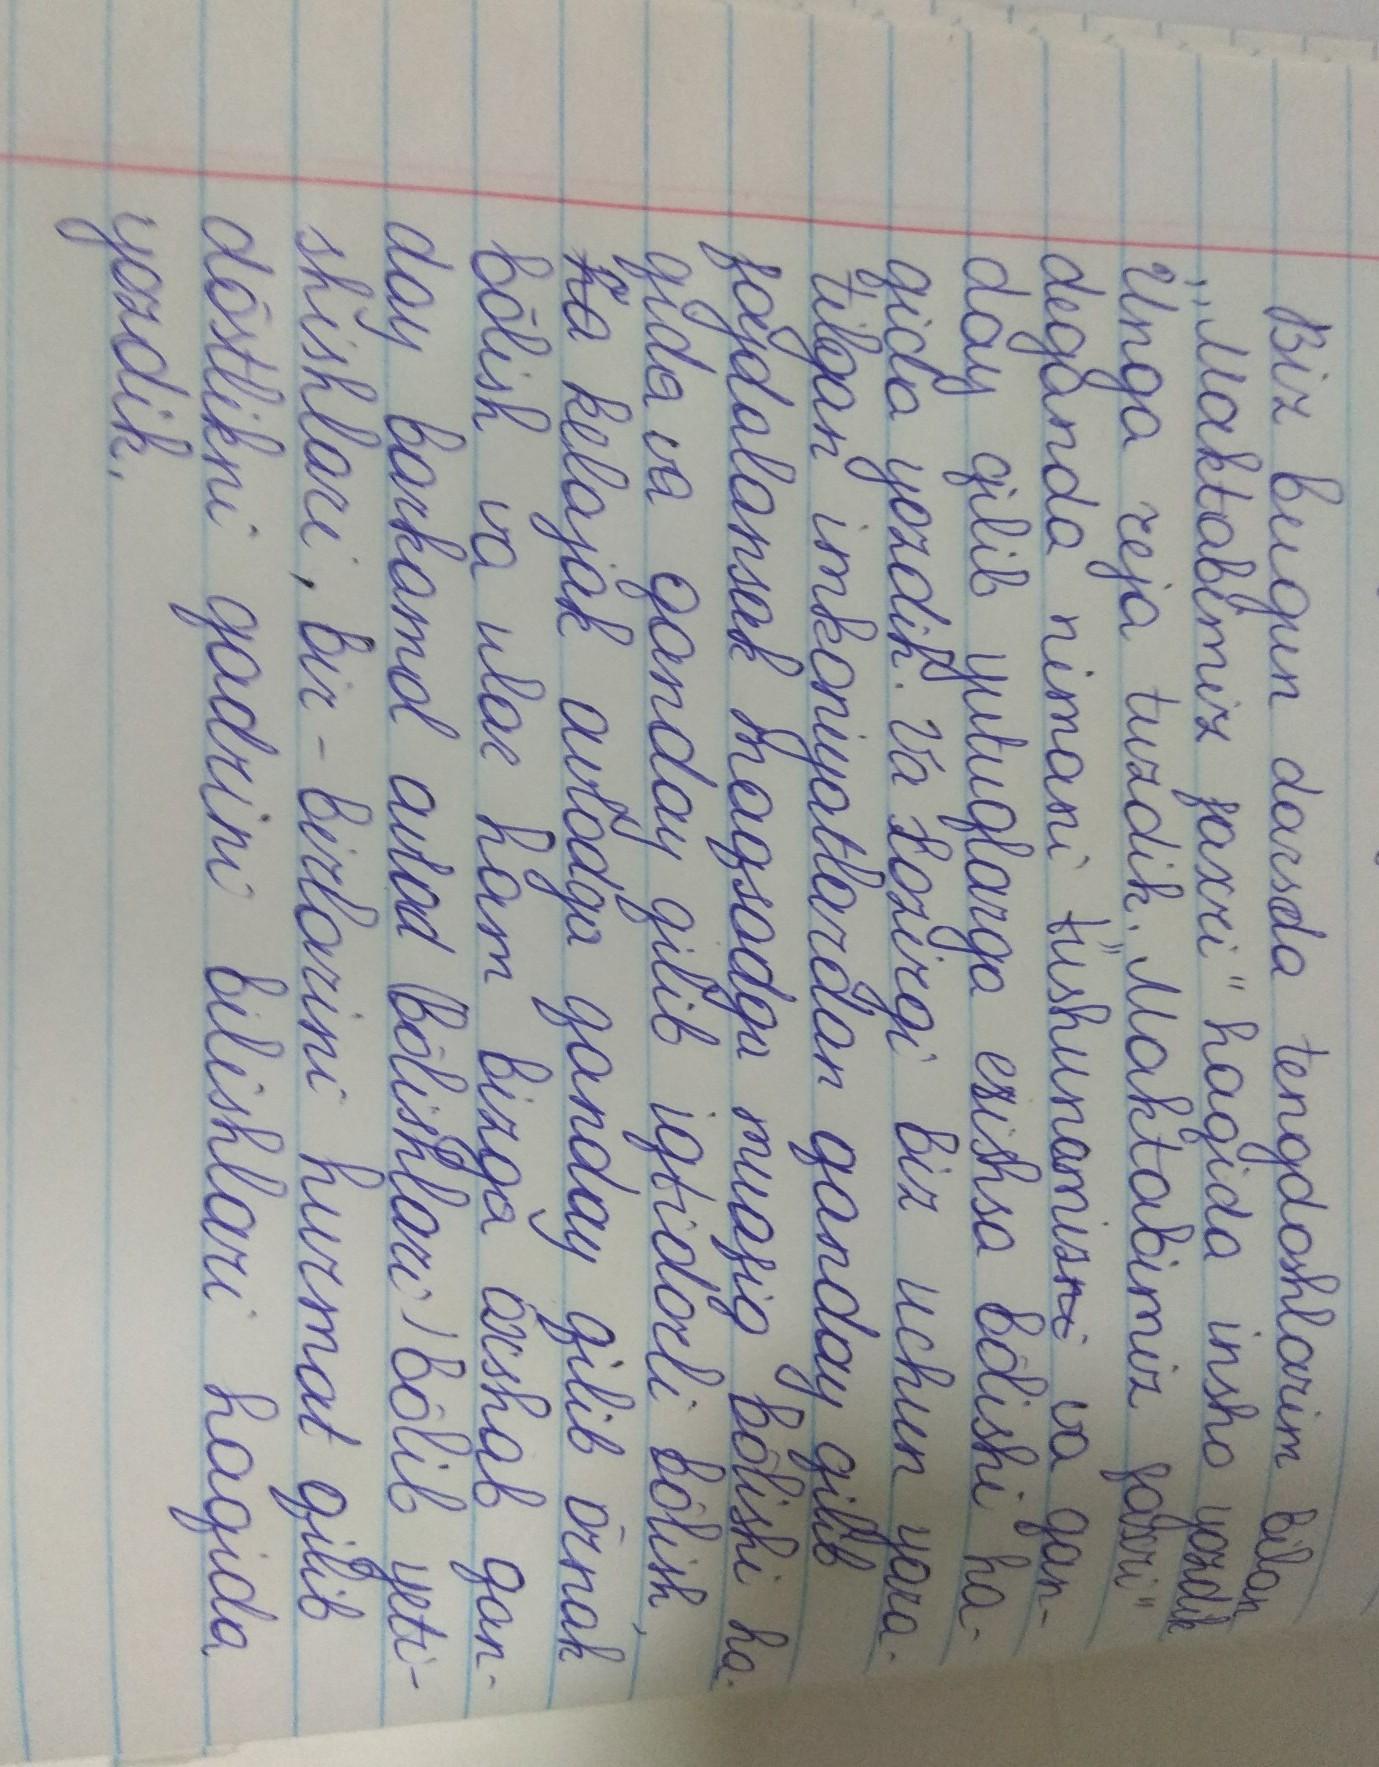 Biz bugun darsda tengdoshlarim bilan
„Maktabimiz faxri" haqida insho yozdik
Unga reja tuzdik. "Maktabimiz faxri"
deganda nimani tushunamizni va qan-
day qilib yutuqlarga erishsa bõlishi ha-
qida yozdik. Va hozirgi biz uchun yara-
tilgan imkoniyatlardan qanday qilib
foydalansak maqsadga muafiq bõlishi ha-
qida va qanday qilib iqtidorli bõlish,
kelajak avlodga qanday qilib õrnak
bõlish va ular ham bizga õxshab qan-
day barkamol avlod (bõlishlari) bõlib yeti-
shishlari, bir-birlarini hurmat qilib
dõstlikni qadrini bilishlari haqida
yozdik.